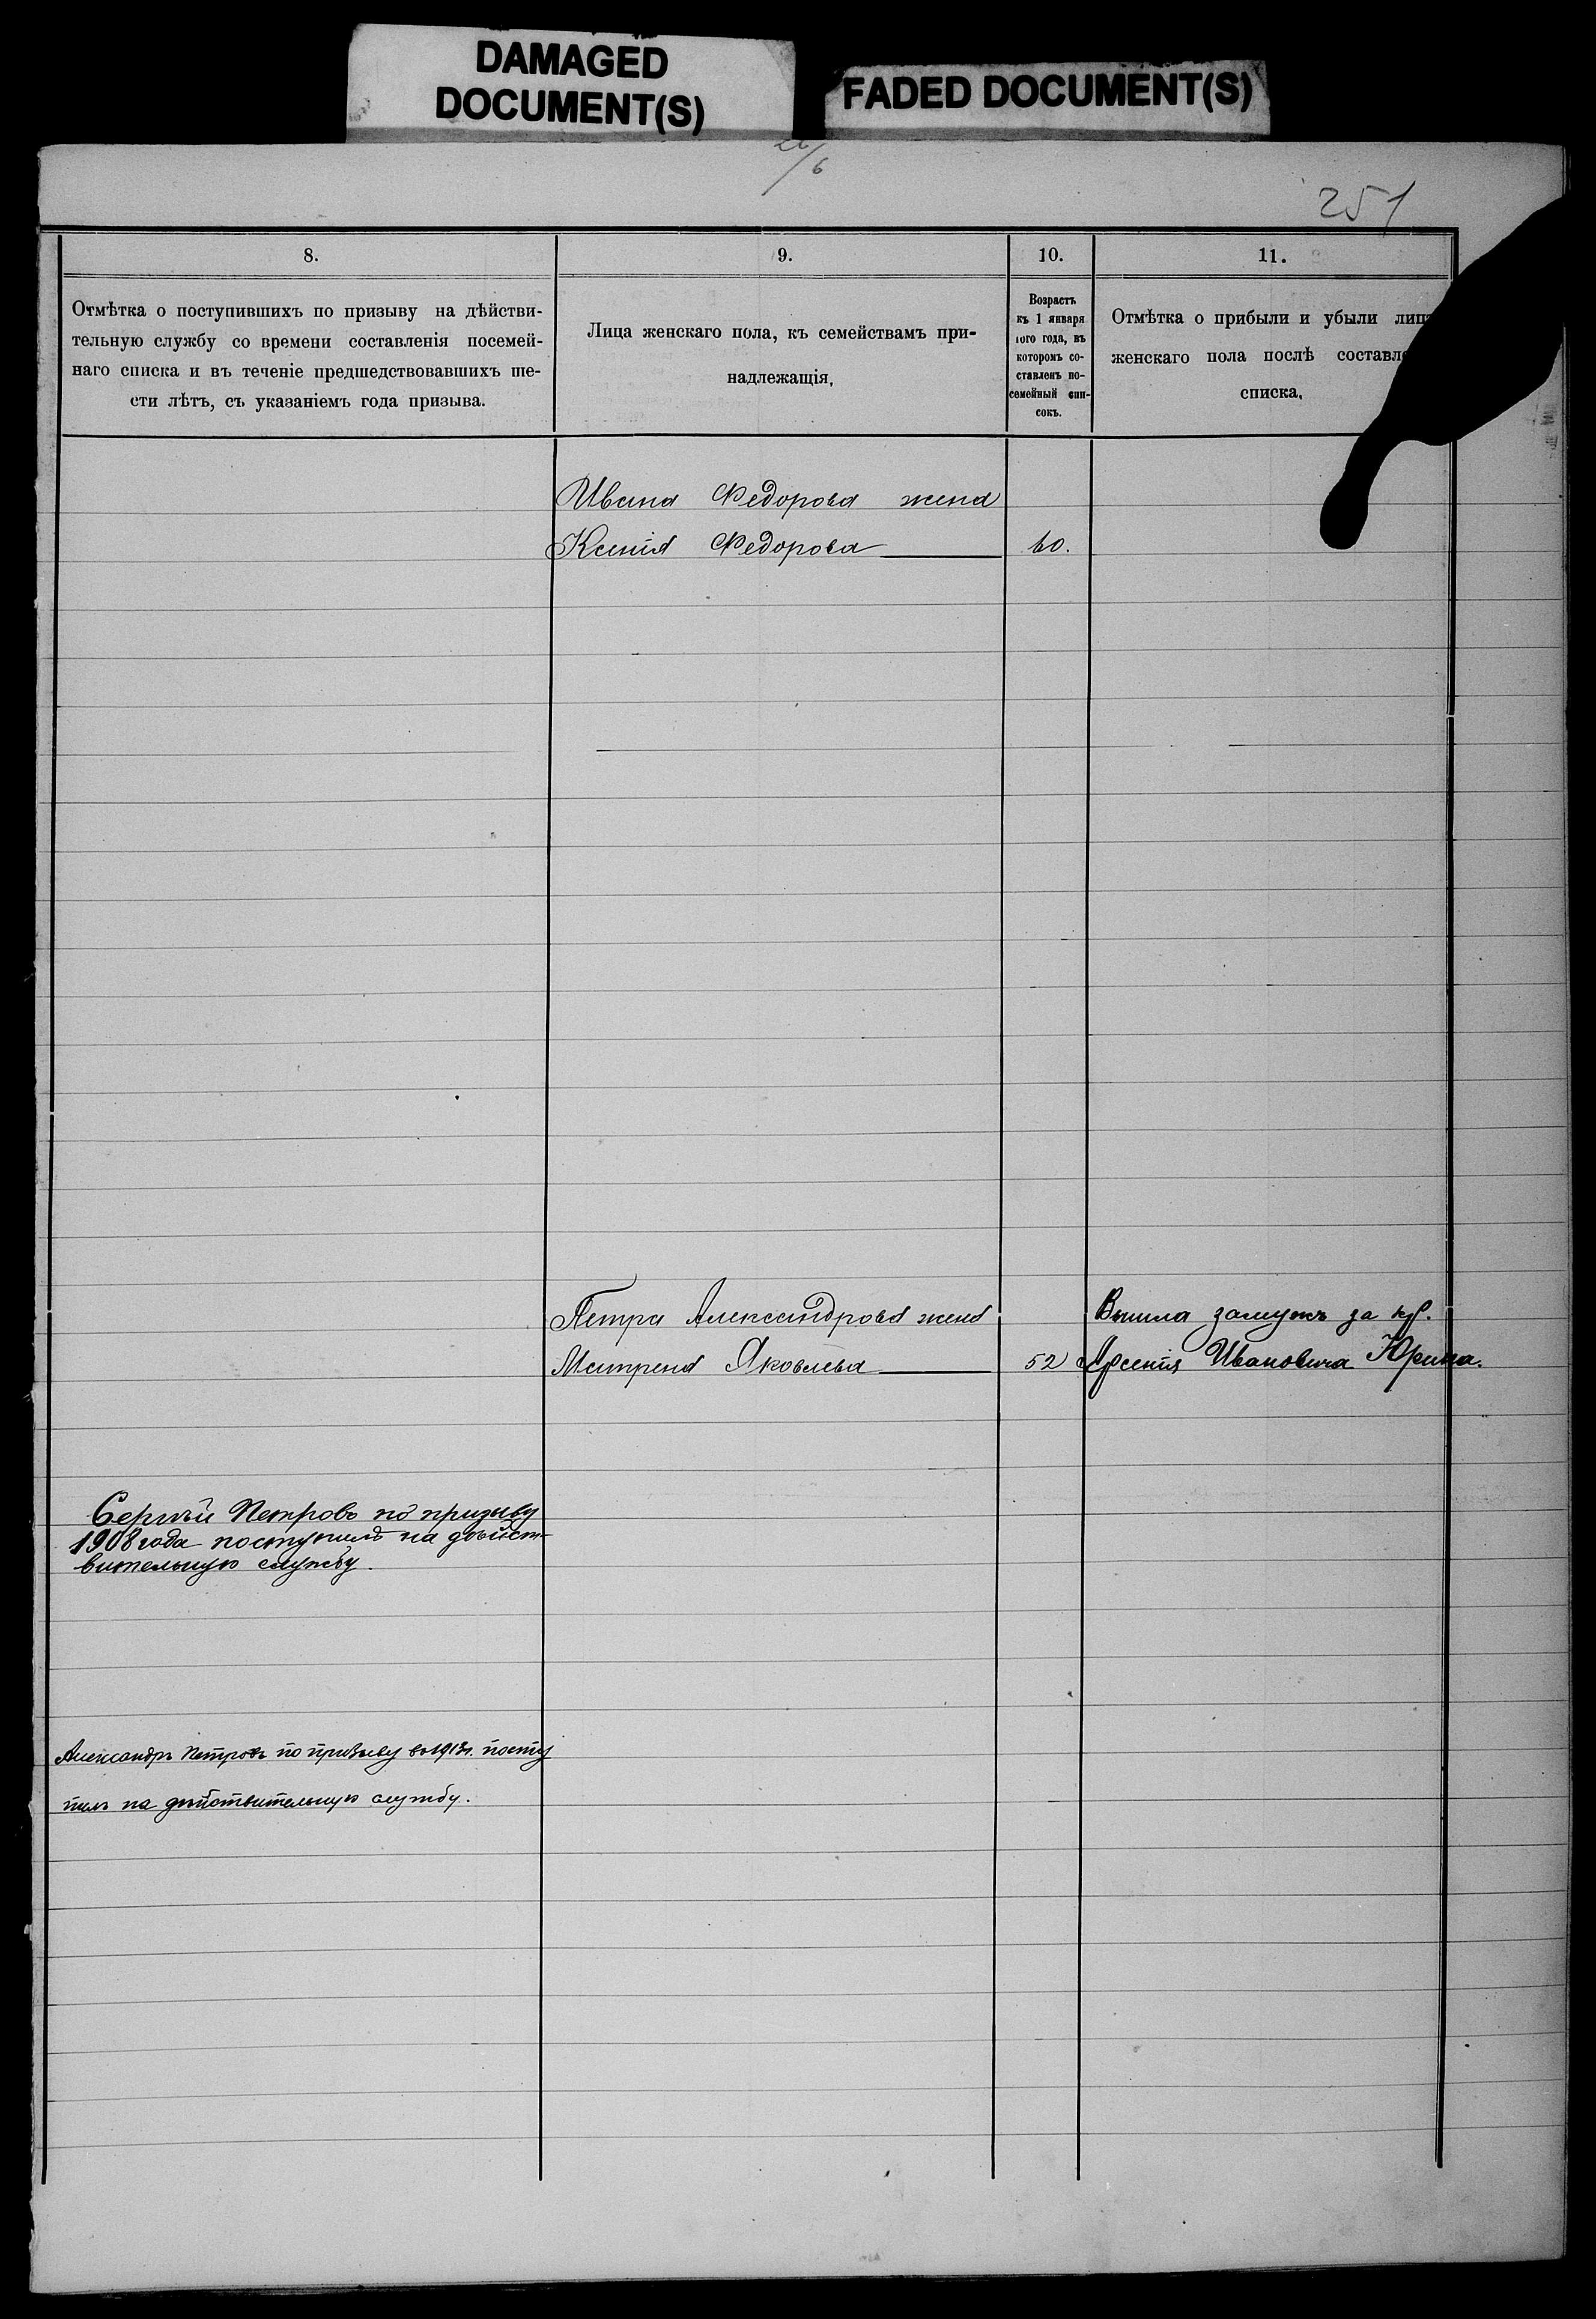 DAMAGED
DOCUMENT(S)
FADED DOCUMENT(S)
251
8.
9.
10.
11.
Отмѣтка о поступившихъ по призыву на дѣйстви-
тельную службу со времени составленія посемей-
наго списка и въ теченіе предшедствовавшихъ ше-
сти лѣтъ, съ указаніемъ года призыва.
Лица женскаго пола, къ семействамъ при-
надлежащія.
Возрастъ
къ 1 января
того года, въ
которомъ со-
ставленъ по-
семейный спи-
сокъ.
Отмѣтка о прибыли и убыли лицъ
женскаго пола послѣ
списка.
Ивана Федорова жена
Ксенія Федорова 60.
Петра Александрова жена
Матрена Яковлева 52
Вышла замужъ за кр.
Арсенія Ивановича Юрина.
Сергѣй Петровъ по призыву
1908 года поступилъ на дѣйст-
вительную службу.
Александръ Петровъ по призыву въ 1913 г. посту
пилъ на дѣйствительную службу.